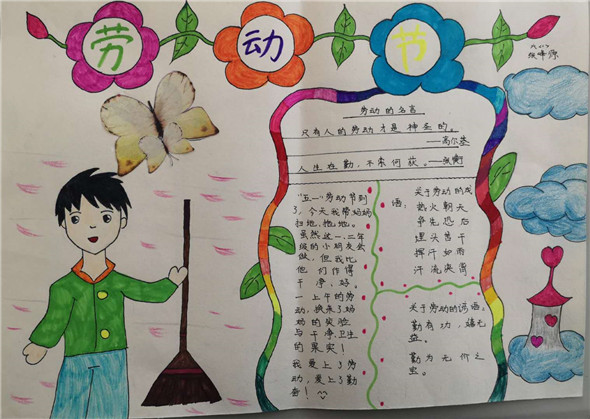 劳动节
劳动的名言
只有人的劳动才是神圣的。
——高尔基
人生在勤,不索何获。——张衡
"五一"劳动节到
了,今天我帮妈妈
扫地、拖地。
虽然这一、二年
级的小朋友会
做,但我比
他们作得
干净、好。
一上午的劳
动,换来了妈
妈的笑脸
与干净卫生
的果实!
我爱上了劳
动,爱上了勤
奋!
关于劳动的成
语:
热火朝天
争先恐后
埋头苦干
挥汗如雨
汗流浃背
关于劳动的谚语。
勤有功,嬉无
益。
勤为无价之
宝。